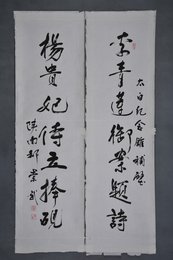 太白紀念館補壁
李青蓮御案題詩
楊貴妃侍立捧硯
陝南